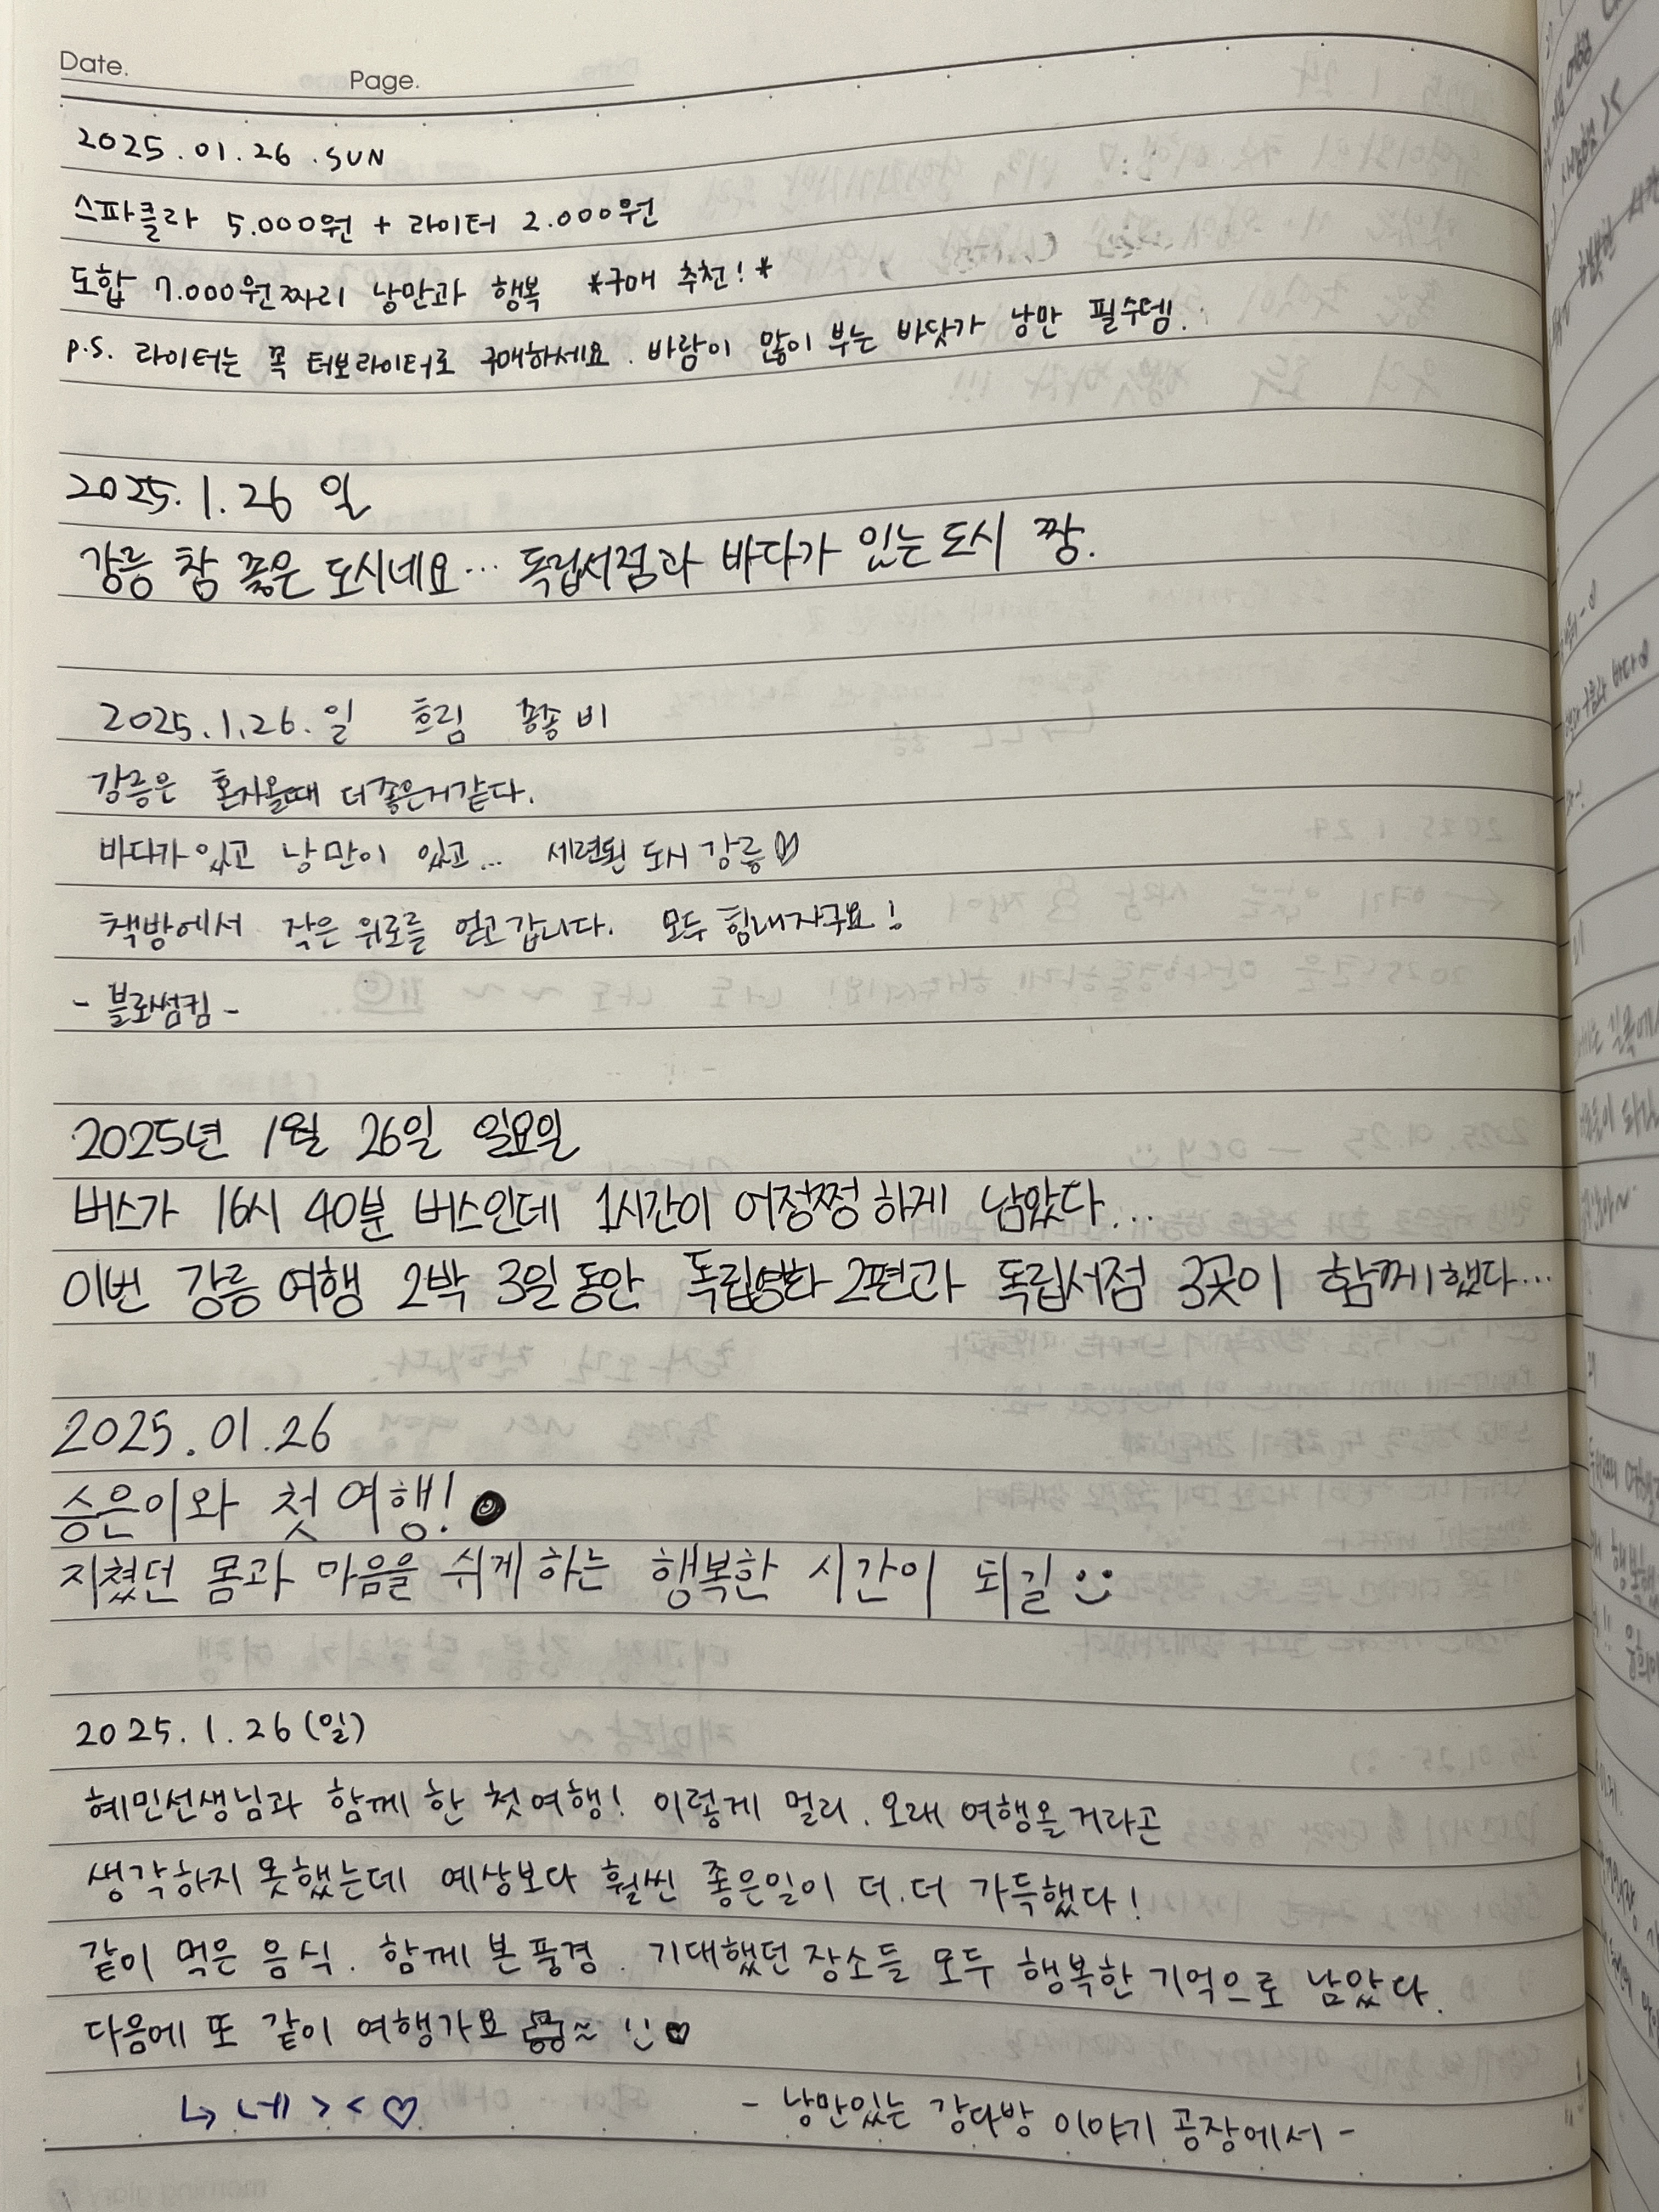 Date.
Page.
2025.01.26.SUN
스파클라 5.000원 + 라이터 2.000원
도합 7.000원짜리 낭만과 행복 *구매 추천!*
P.S. 라이터는 꼭 터보라이터로 구매하세요. 바람이 많이 부는 바닷가 낭만 필수템.
2025.1.26 일
강릉 참 좋은 도시네요... 독립서점과 바다가 있는 도시 짱.
2025.1.26.일 흐림 쫑쫑 비
강릉은 혼자올때 더좋은거같다.
바다가 있고 낭만이 있고... 세련된 도시 강릉♡
책방에서 작은 위로를 얻고 갑니다. 모두 힘내자구요!
- 블로썸킴 -
2025년 1월 26일 일요일
버스가 16시 40분 버스인데 1시간이 어정쩡하게 남았다...
이번 강릉 여행 2박 3일 동안 독립영화 2편과 독립서점 3곳이 함께했다...
2025.01.26
승은이와 첫 여행!
지쳤던 몸과 마음을 쉬게 하는 행복한 시간이 되길 :)
2025.1.26(일)
혜민선생님과 함께 한 첫여행! 이렇게 멀리. 오래 여행올거라곤
생각하지 못했는데 예상보다 훨씬 좋은일이 더.더 가득했다!
같이 먹은 음식. 함께 본 풍경. 기대했던 장소들 모두 행복한 기억으로 남았다.
다음에 또 같이 여행가요 ♥
↳ 네 > < ♡
- 낭만있는 강다방 이야기 공장에서 -